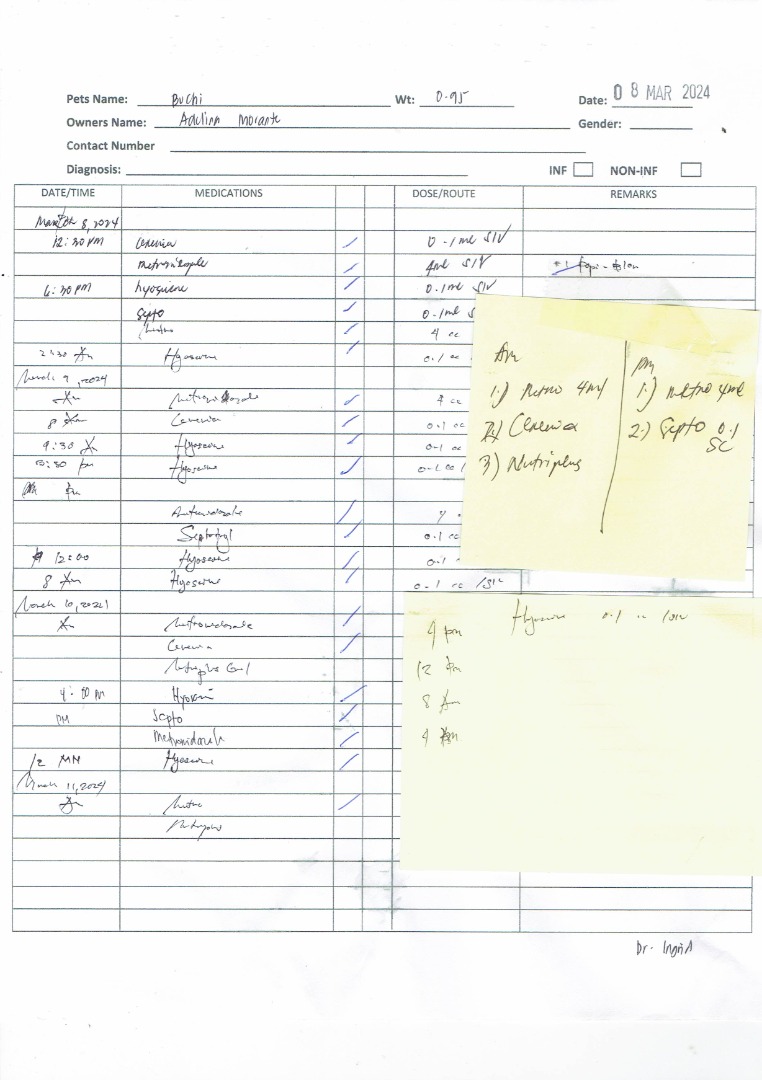 Pets Name: Buchi Wt: 0.95 Date: 08 MAR 2024
Owners Name: Adelina Morante Gender:
Contact Number
Diagnosis: INF NON-INF
DATE/TIME MEDICATIONS DOSE/ROUTE REMARKS
March 8, 2024
12:30 PM Cerenia 0.1ml SIV
4ml SIV
6:30 PM hyoscine 0.1ml SIV
Septo 0.1ml
4 cc
2:30 Am Hyoscine 0.1 cc
March 9, 2024
Am Metronidazole 4 cc
8 Am Cerenia 0.1 cc
9:30 Am Hyoscine 0.1 cc
pm Hyoscine 0.1 cc
pm
Septotryl 0.1 cc
12:00 Hyoscine 0.1
8 Am Hyoscine 0.1 cc /SIV
March 10, 2024
Am Metronidazole
Cerenia
Hyoscine
PM Septo
Metronidazole
12 MN Hyoscine
March 11, 2024
Am Metro
Am
1.) Metro 4ml
2.) Cerenia
3) Nutriplus
pm
1.) metro 4ml
2.) Septo 0.1
SC
4 pm Hyoscine 0.1 cc /SIV
12 Am
8 Am
4 pm
Dr. Ingrid